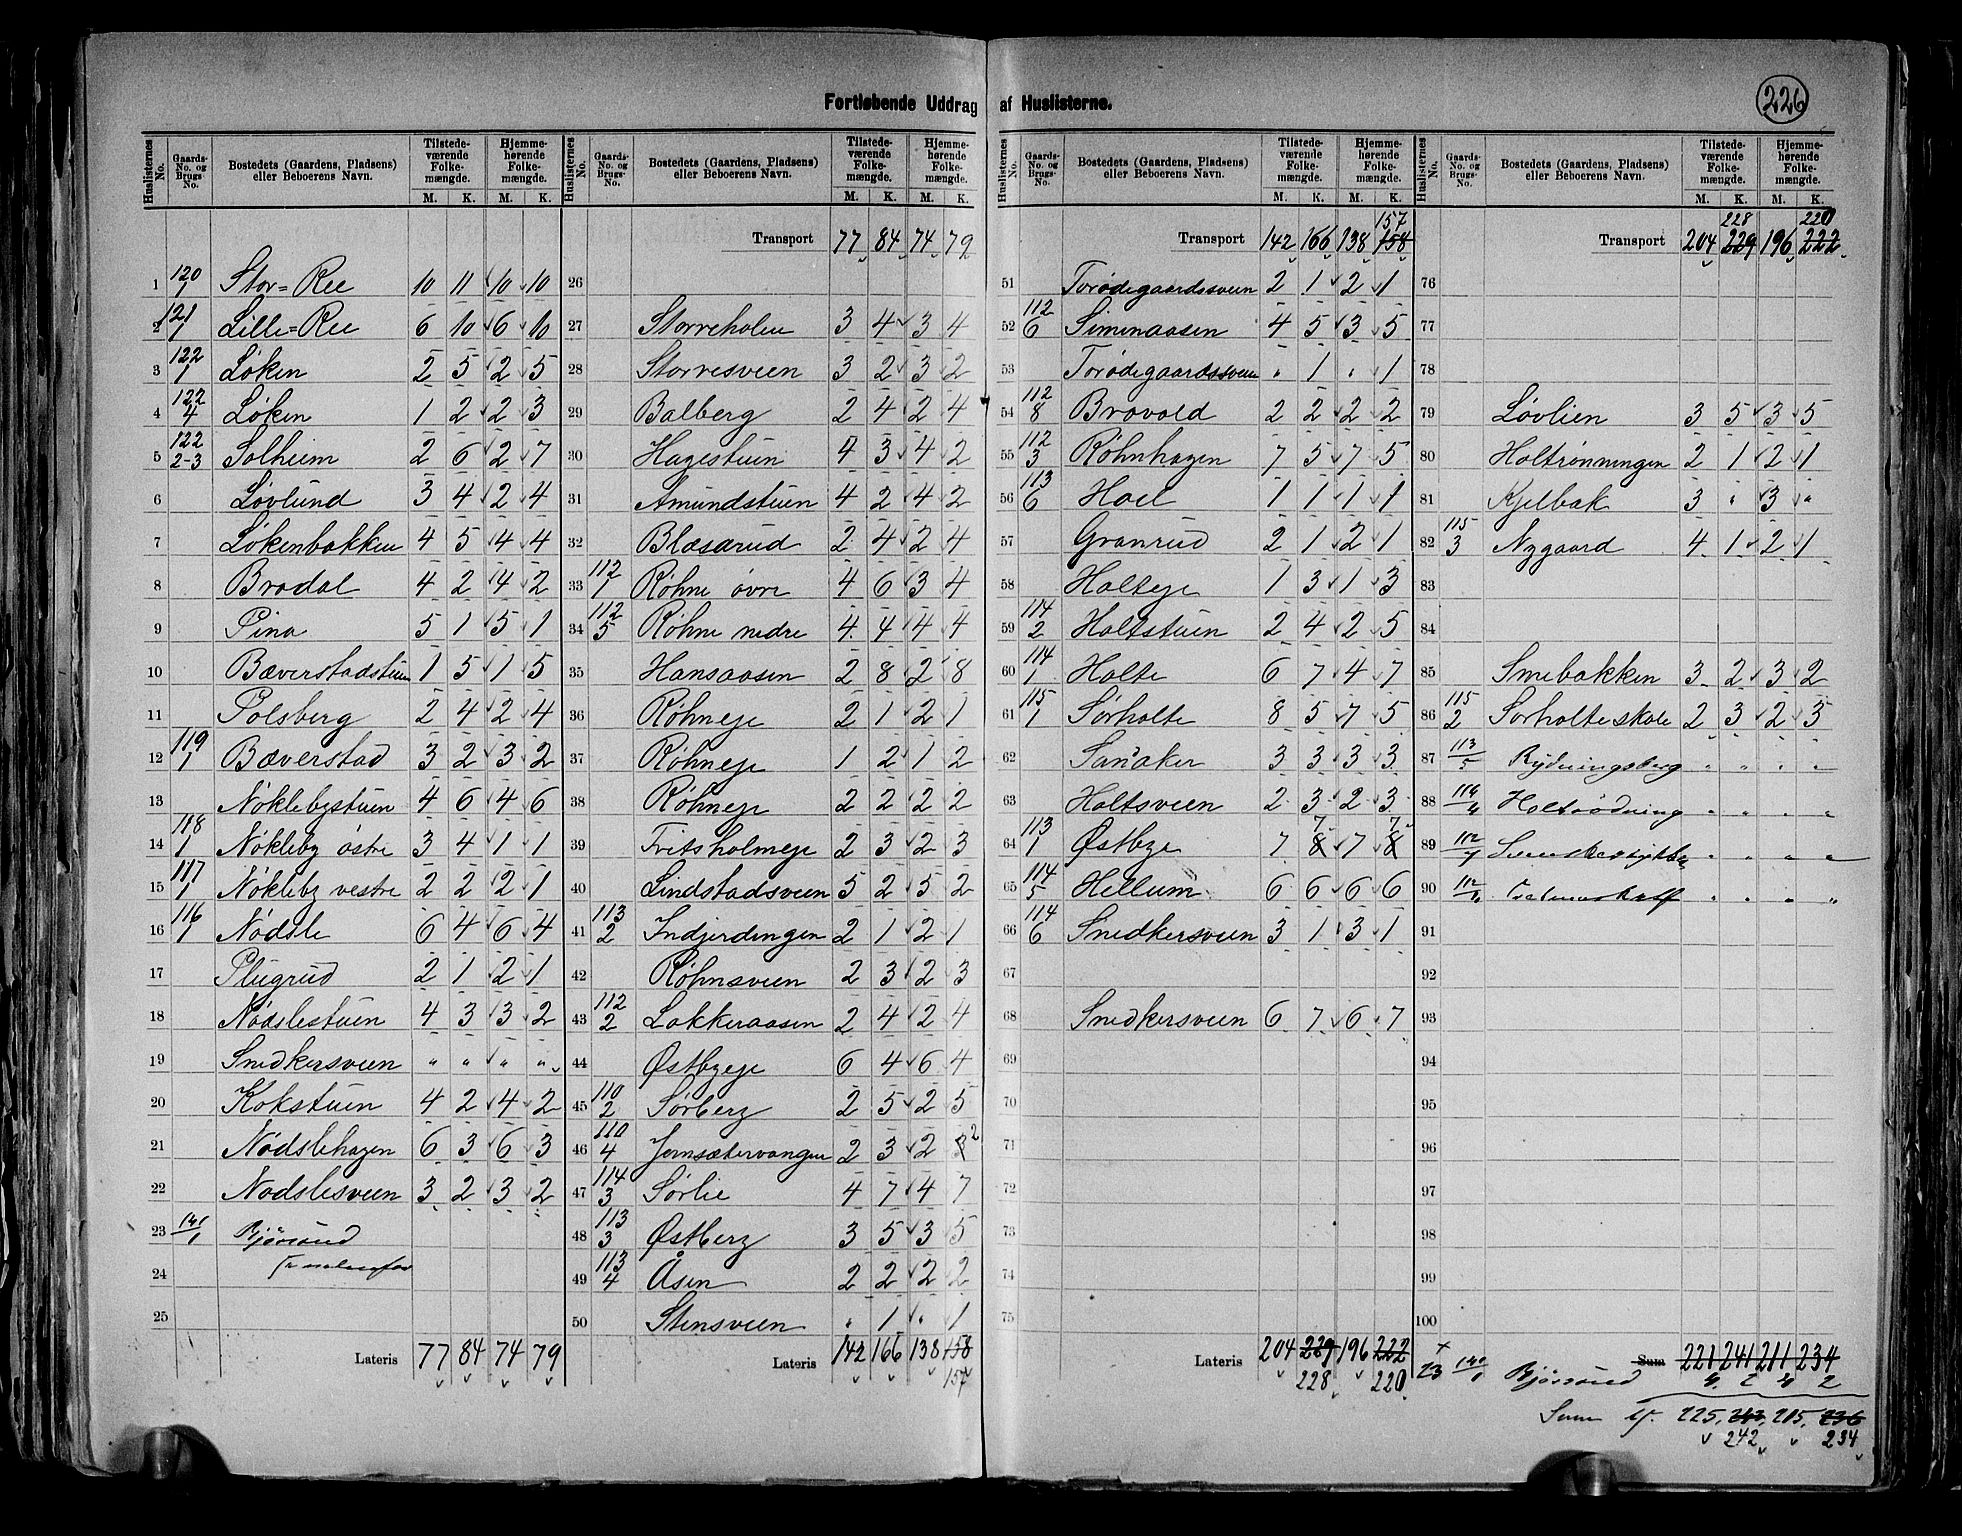 Fortløbende Uddrag af Huslisterne.
226
Huslisternes No. | Gaards-No. og Brugs-No. | Bostedets (Gaardens, Pladsens) eller Beboerens Navn. | Tilstedeværende Folkemængde. M. K. | Hjemmehørende Folkemængde. M. K.
1 120/1 Stor=Ree 10 11 10 10
2 121/1 Lille=Ree 6 10 6 10
3 122/1 Løken 2 5 2 5
4 122/4 Løken 1 2 2 3
5 122/2-3 Solheim 2 6 2 7
6 Løvlund 3 4 2 4
7 Løkenbakken 4 5 4 4
8 Brodal 4 2 4 2
9 Pina 5 1 5 1
10 Bæverstadstuen 1 5 1 5
11 Polsberg 2 4 2 4
12 119/1 Bæverstad 3 2 3 2
13 Nøklebystuen 4 6 4 6
14 118/1 Nøkleby østre 3 4 1 1
15 117/1 Nøkleby vestre 2 2 2 1
16 116/1 Nødsle 6 4 6 4
17 Plugrud 2 1 2 1
18 Nødslestuen 4 3 3 2
19 Snedkersveen " " " "
20 Kokstuen 4 2 4 2
21 Nødslehagen 6 3 6 3
22 Nødslesveen 3 2 3 2
23 141/1 Bjørsund
24
25
Lateris 77 84 74 79
Transport 77 84 74 79
26
27 Storreholen 3 4 3 4
28 Storresveen 3 2 3 2
29 Balberg 2 4 2 4
30 Hagestuen 4 3 4 2
31 Amundstuen 4 2 4 2
32 Blæsærud 2 4 2 4
33 112/1 Røhne øvre 4 6 3 4
34 112/5 Røhne nedre 4 4 4 4
35 Hansaasen 2 8 2 8
36 Røhneje 2 1 2 1
37 Røhneje 1 2 1 2
38 Røhneje 2 2 2 2
39 Fritsholmeje 2 3 2 3
40 Lindstadsveen 5 2 5 2
41 113/2 Indjerdingen 2 1 2 1
42 Røhnsveen 2 3 2 3
43 112/2 Lakkeraasen 2 4 2 4
44 Østbyeje 6 4 6 4
45 110/2 Sørberg 2 5 2 5
46 110/4 Jernsætervangen 2 3 2 3 2
47 114/3 Sørlie 4 7 4 7
48 113/3 Østberg 3 5 3 5
49 113/4 Åsen 2 2 2 2
50 Stensveen " 1 " 1
Lateris 142 166 138 158
157
157
Transport 142 166 138 158
51 Torødegaardssveen 2 1 2 1
52 112/6 Simenaasen 4 5 3 5
53 Torødegaardssveen " 1 " 1
54 112/8 Brovold 2 2 2 2
55 112/3 Røhnhagen 7 5 7 5
56 113/6 Hoel 1 1 1 1
57 Granrud 2 1 2 1
58 Holteje 1 3 1 3
59 114/2 Holtstuen 2 4 2 5
60 114/1 Holte 6 7 4 7
61 115/1 Sørholte 8 5 7 5
62 Sandaker 3 3 3 3
63 Holtsveen 2 3 2 3
64 113/1 Østbye 7 8 7 7 8 7
65 114/5 Hellum 6 6 6 6
66 114/6 Snedkersveen 3 1 3 1
67
68 Snedkersveen 6 7 6 7
69
70
71
72
73
74
75
Lateris 204 229 196 222
228 220
228 220
Transport 204 229 196 222
76
77
78
79 Løvlien 3 5 3 5
80 Holtrønningen 2 1 2 1
81 Kjelbak 3 " 3 "
82 115/3 Nygaard 4 1 2 1
83
84
85 Smebakken 3 2 3 2
86 115/2 Sørholteskole 2 3 2 3
87 113/5 Rydningsberg " " " "
88 114/4 Holtrødning " " " "
89 112/7 " " " "
90 " " " "
91
92
93
94
95
96
97
98
99
100
Sum 221 241 211 234
23 141/1 Bjørsund 4 2 4 2
Sum 225 243 215 236
242 234